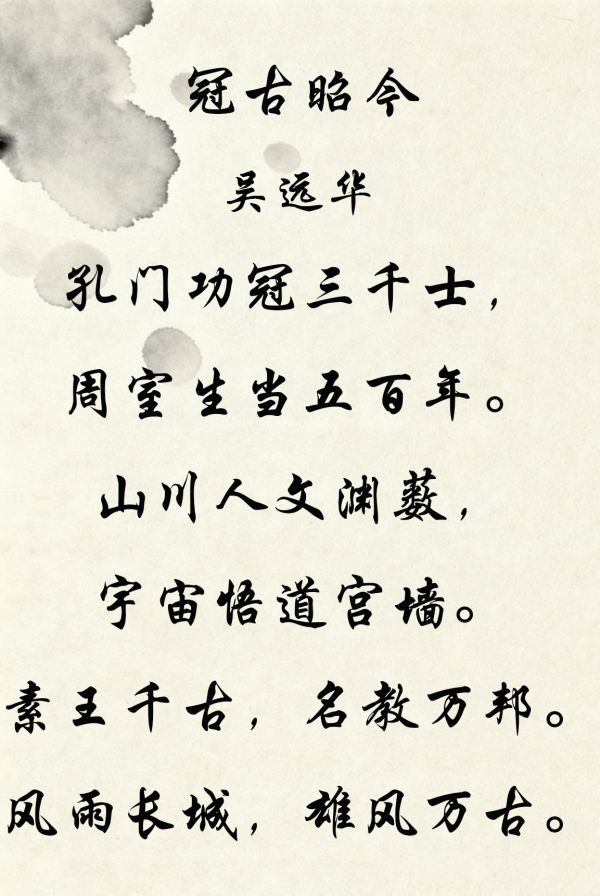 冠古昭今
吴远华
孔门功冠三千士，
周室生当五百年。
山川人文渊薮，
宇宙悟道宫墙。
素王千古，名教万邦。
风雨长城，雄风万古。